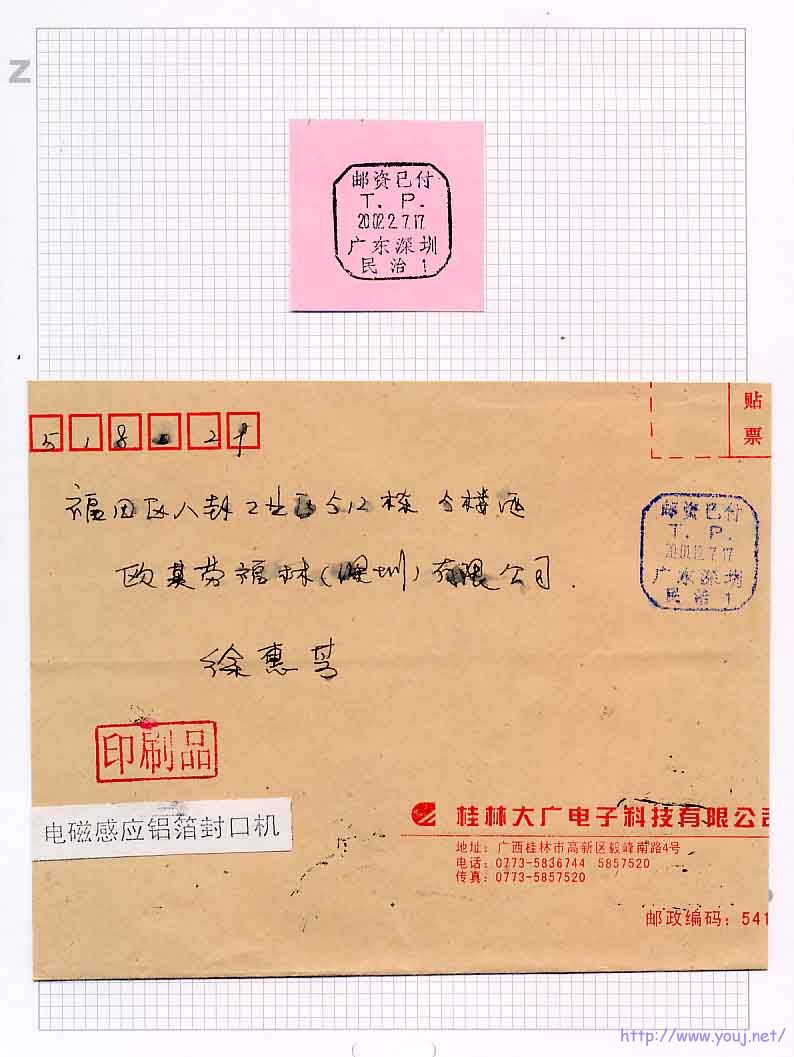 邮资已付
T. P.
2002.2.7.17
广东深圳
民治 1
贴
票
518 2
福田区八卦工业区512栋5楼西
欧莫劳福林(深圳)有限公司.
徐惠
邮资已付
T. P.
广东深圳
民治 1
印刷品
电磁感应铝箔封口机
桂林大广电子科技有限公司
地址: 广西桂林市高新区毅峰南路4号
电话: 0773-5836744 5857520
传真: 0773-5857520
邮政编码: 541
http://www.youj.net/